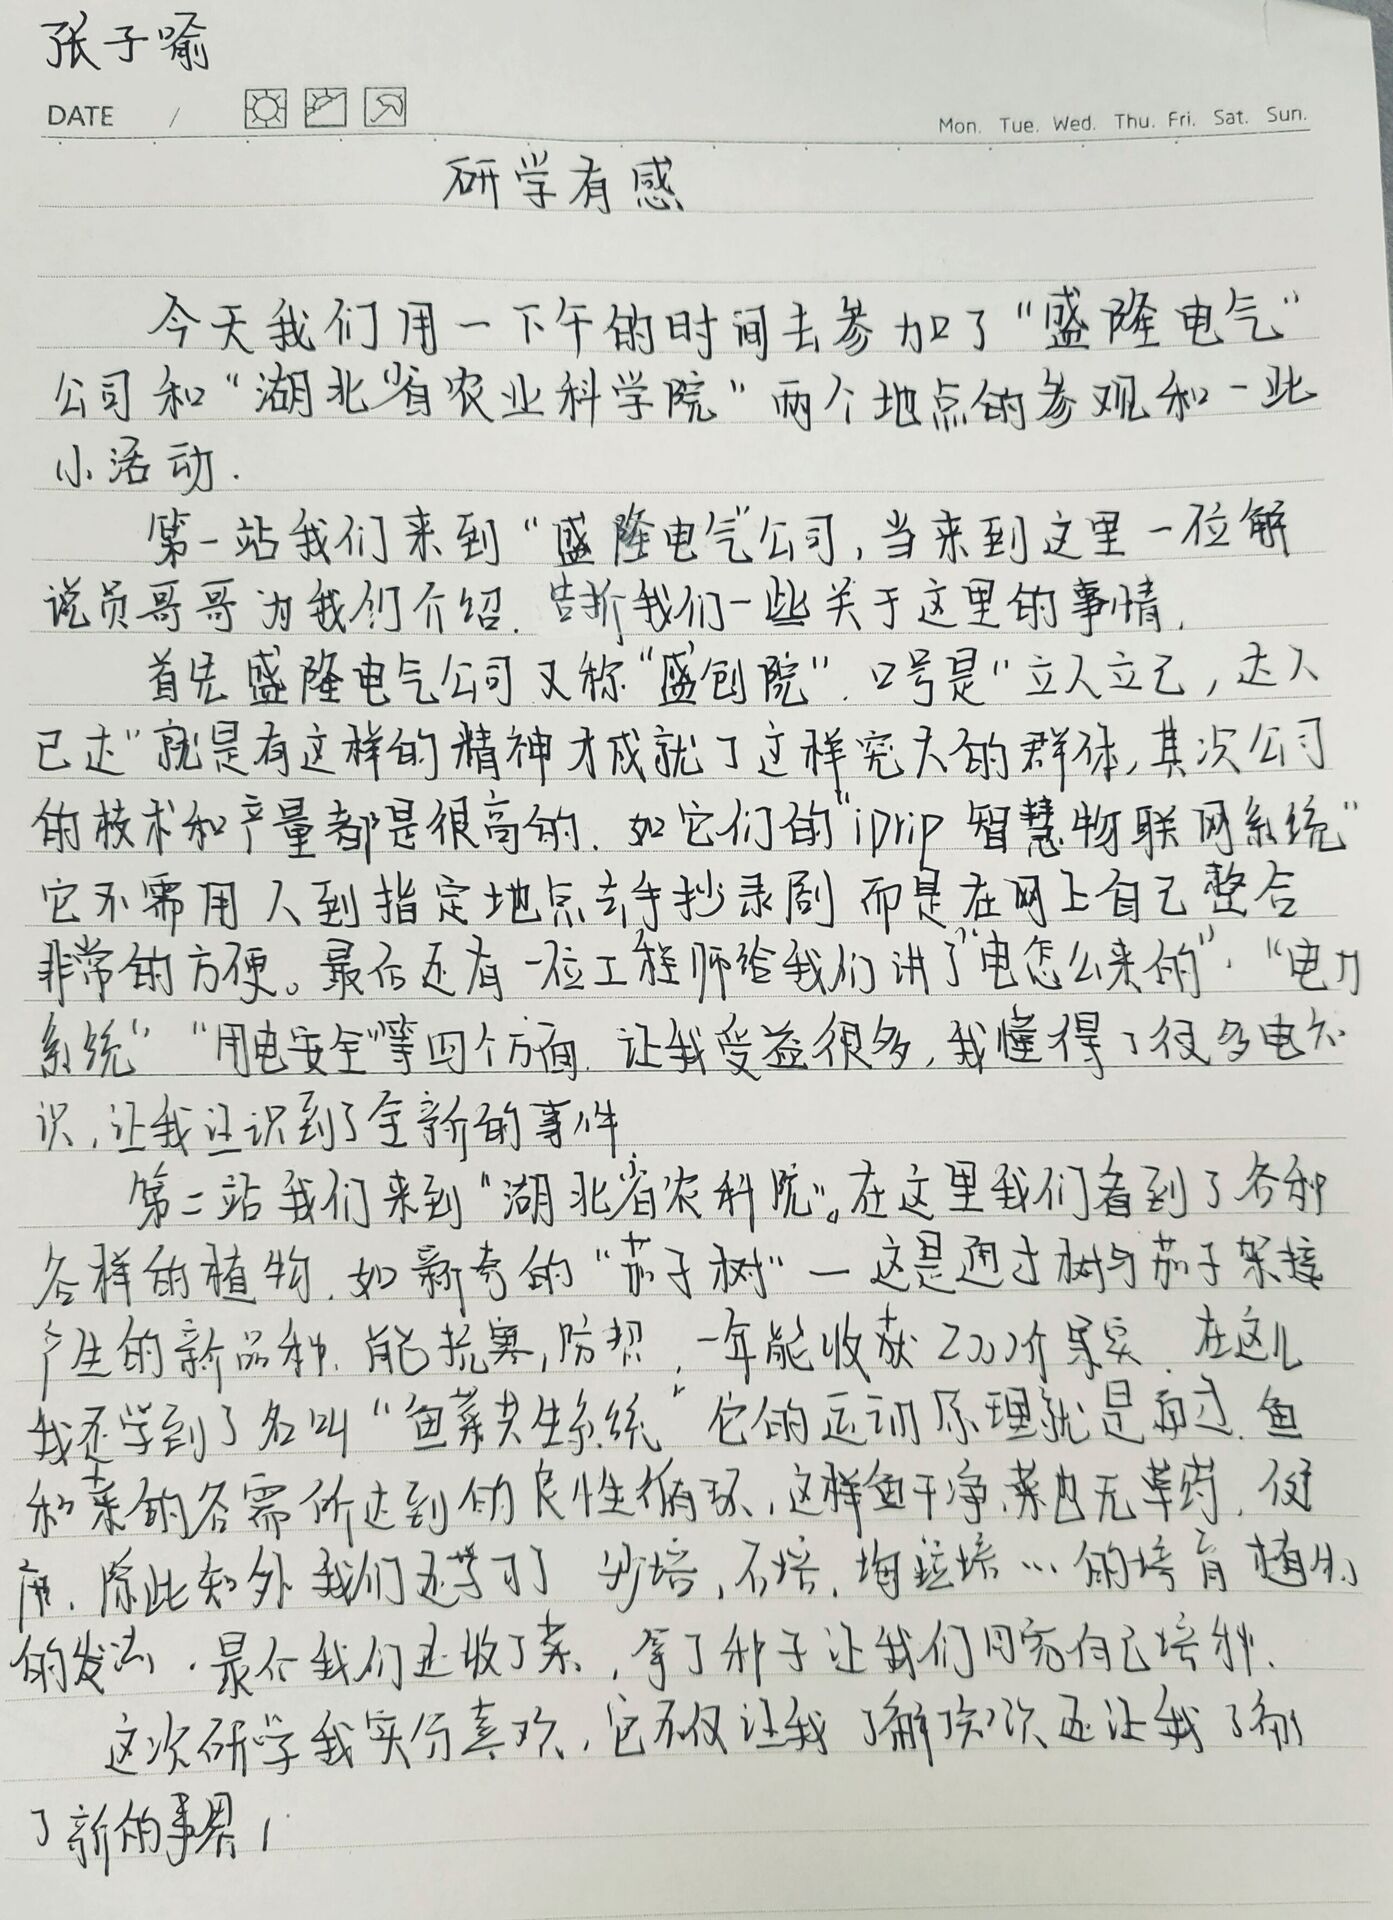 张子喻
DATE /
Mon. Tue. Wed. Thu. Fri. Sat. Sun.
研学有感
今天我们用一下午的时间去参加了“盛隆电气”
公司和“湖北省农业科学院”两个地点的参观和一些
小活动.
第一站我们来到“盛隆电气”公司,当来到这里一位解
说员哥哥为我们介绍.告折我们一些关于这里的事情,
首先盛隆电气公司又称“盛创院”.口号是“立人立己,达人
己达”就是有这样的精神才成就了这样宠大的群体,其次公司
的技术和产量都是很高的.如它们的“iprip智慧物联网系统”
它不需用人到指定地点去手抄录剧而是在网上自己整合
非常的方便。最后还有一位工程师给我们讲了“电怎么来的”.“电力
系统”“用电安全”等四个方面.让我受益很多,我懂得了很多电知
识,让我认识到了全新的事件
第二站我们来到“湖北省农科院”。在这里我们看到了各种
各样的植物.如新奇的“茄子树”—这是通过树与茄子架接
产生的新品种.能抗寒,防,一年能收获2000个果实.在这儿
我还学到了名叫“鱼菜共生系统”它的运训原理就是通过.鱼
和菜的各需所达到的良性循环,这样鱼干净,菜也无草药,健
康.除此知外我们还学习了沙培,石培,培…的培育植物
的发法.最后我们还收了菜,拿了种子让我们回家自己培种.
这次研学我实分喜欢,它不仅让我了解知识还让我了解
了新的事界!